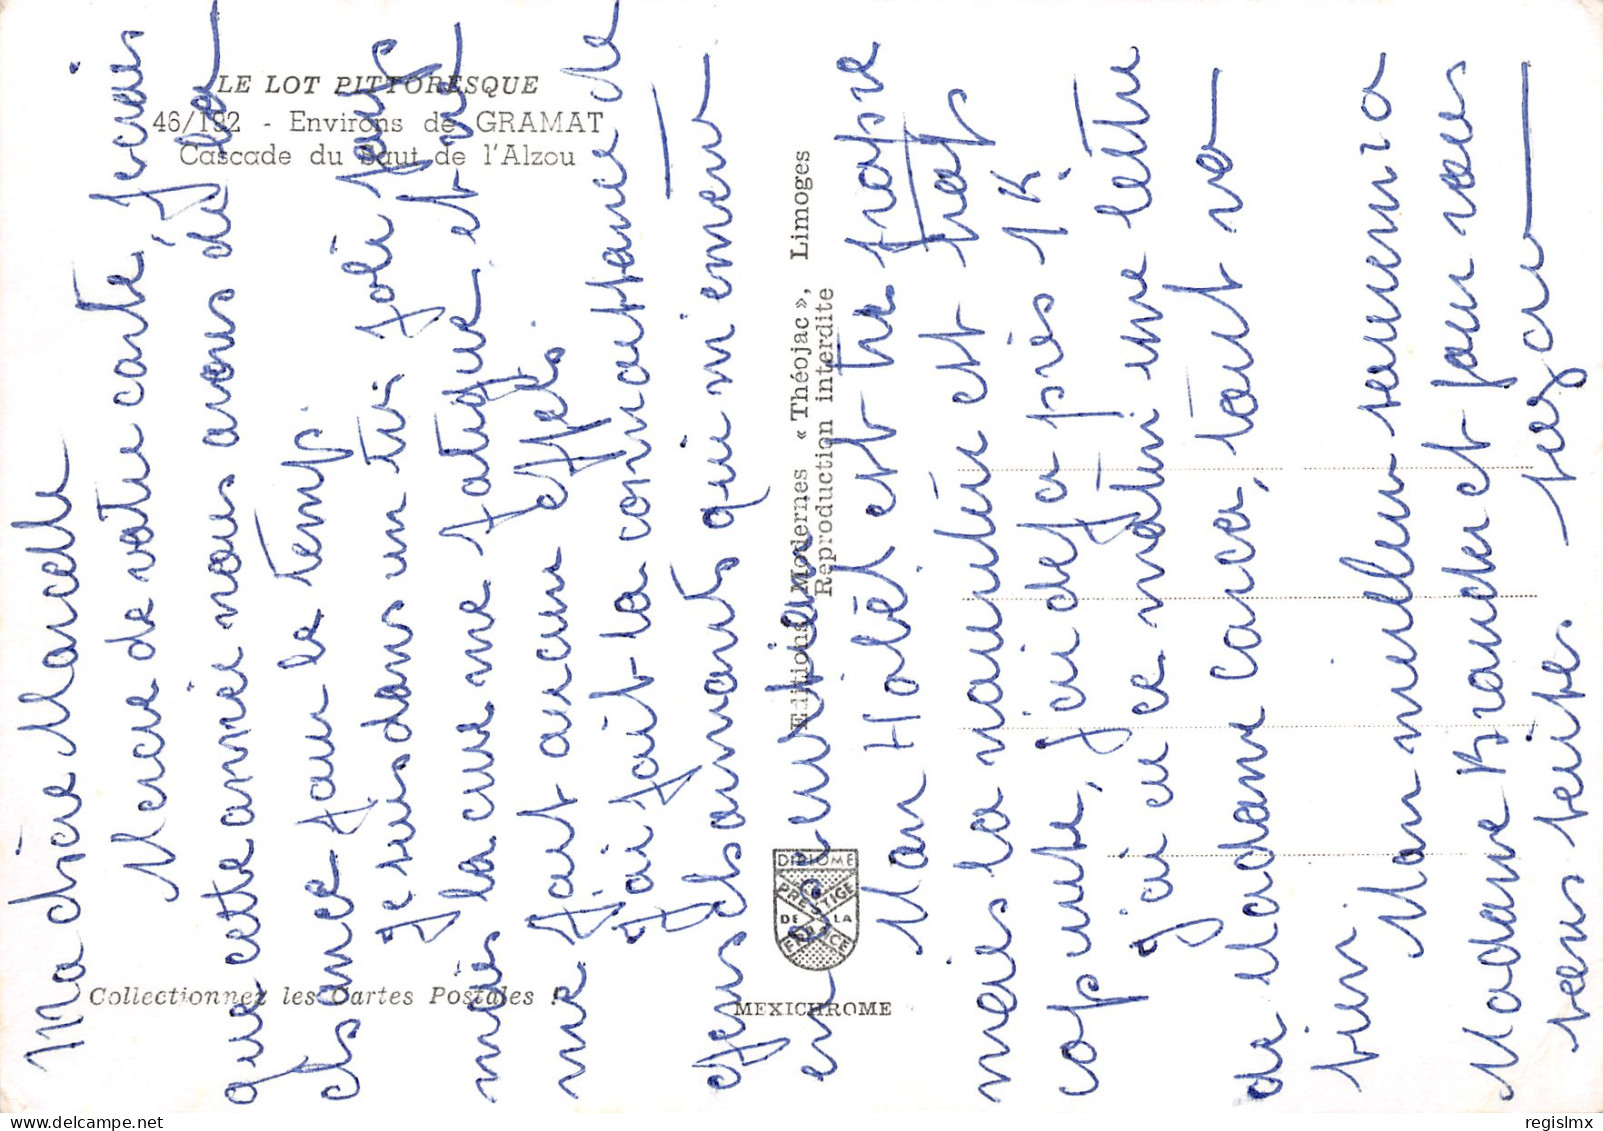 LE LOT PITTORESQUE
46/192 - Environs de GRAMAT
Cascade du Saut de l'Alzou
Collectionnez les Cartes Postales !
Editions Modernes « Théojac », Limoges
Reproduction interdite
DIPLOME
PRESTIGE
DE LA
FRANCE
MEXICHROME
Ma chère Marcelle
Merci de votre carte, je crois
que cette année nous avons de la
chance pour le temps.
Je suis dans un très joli pays
mais la cure me fatigue et ne
me fait aucun effet.
J'ai fait la connaissance de
gens charmants qui m'emmènent
en
Mon Hôtel est très propre
mais la nourriture est trop
copieuse, j'ai déjà pris 1K.
j'ai eu ce matin une lettre
de Madame, tout va
bien.
Mon meilleur souvenir à
Madame et pour vous
bons